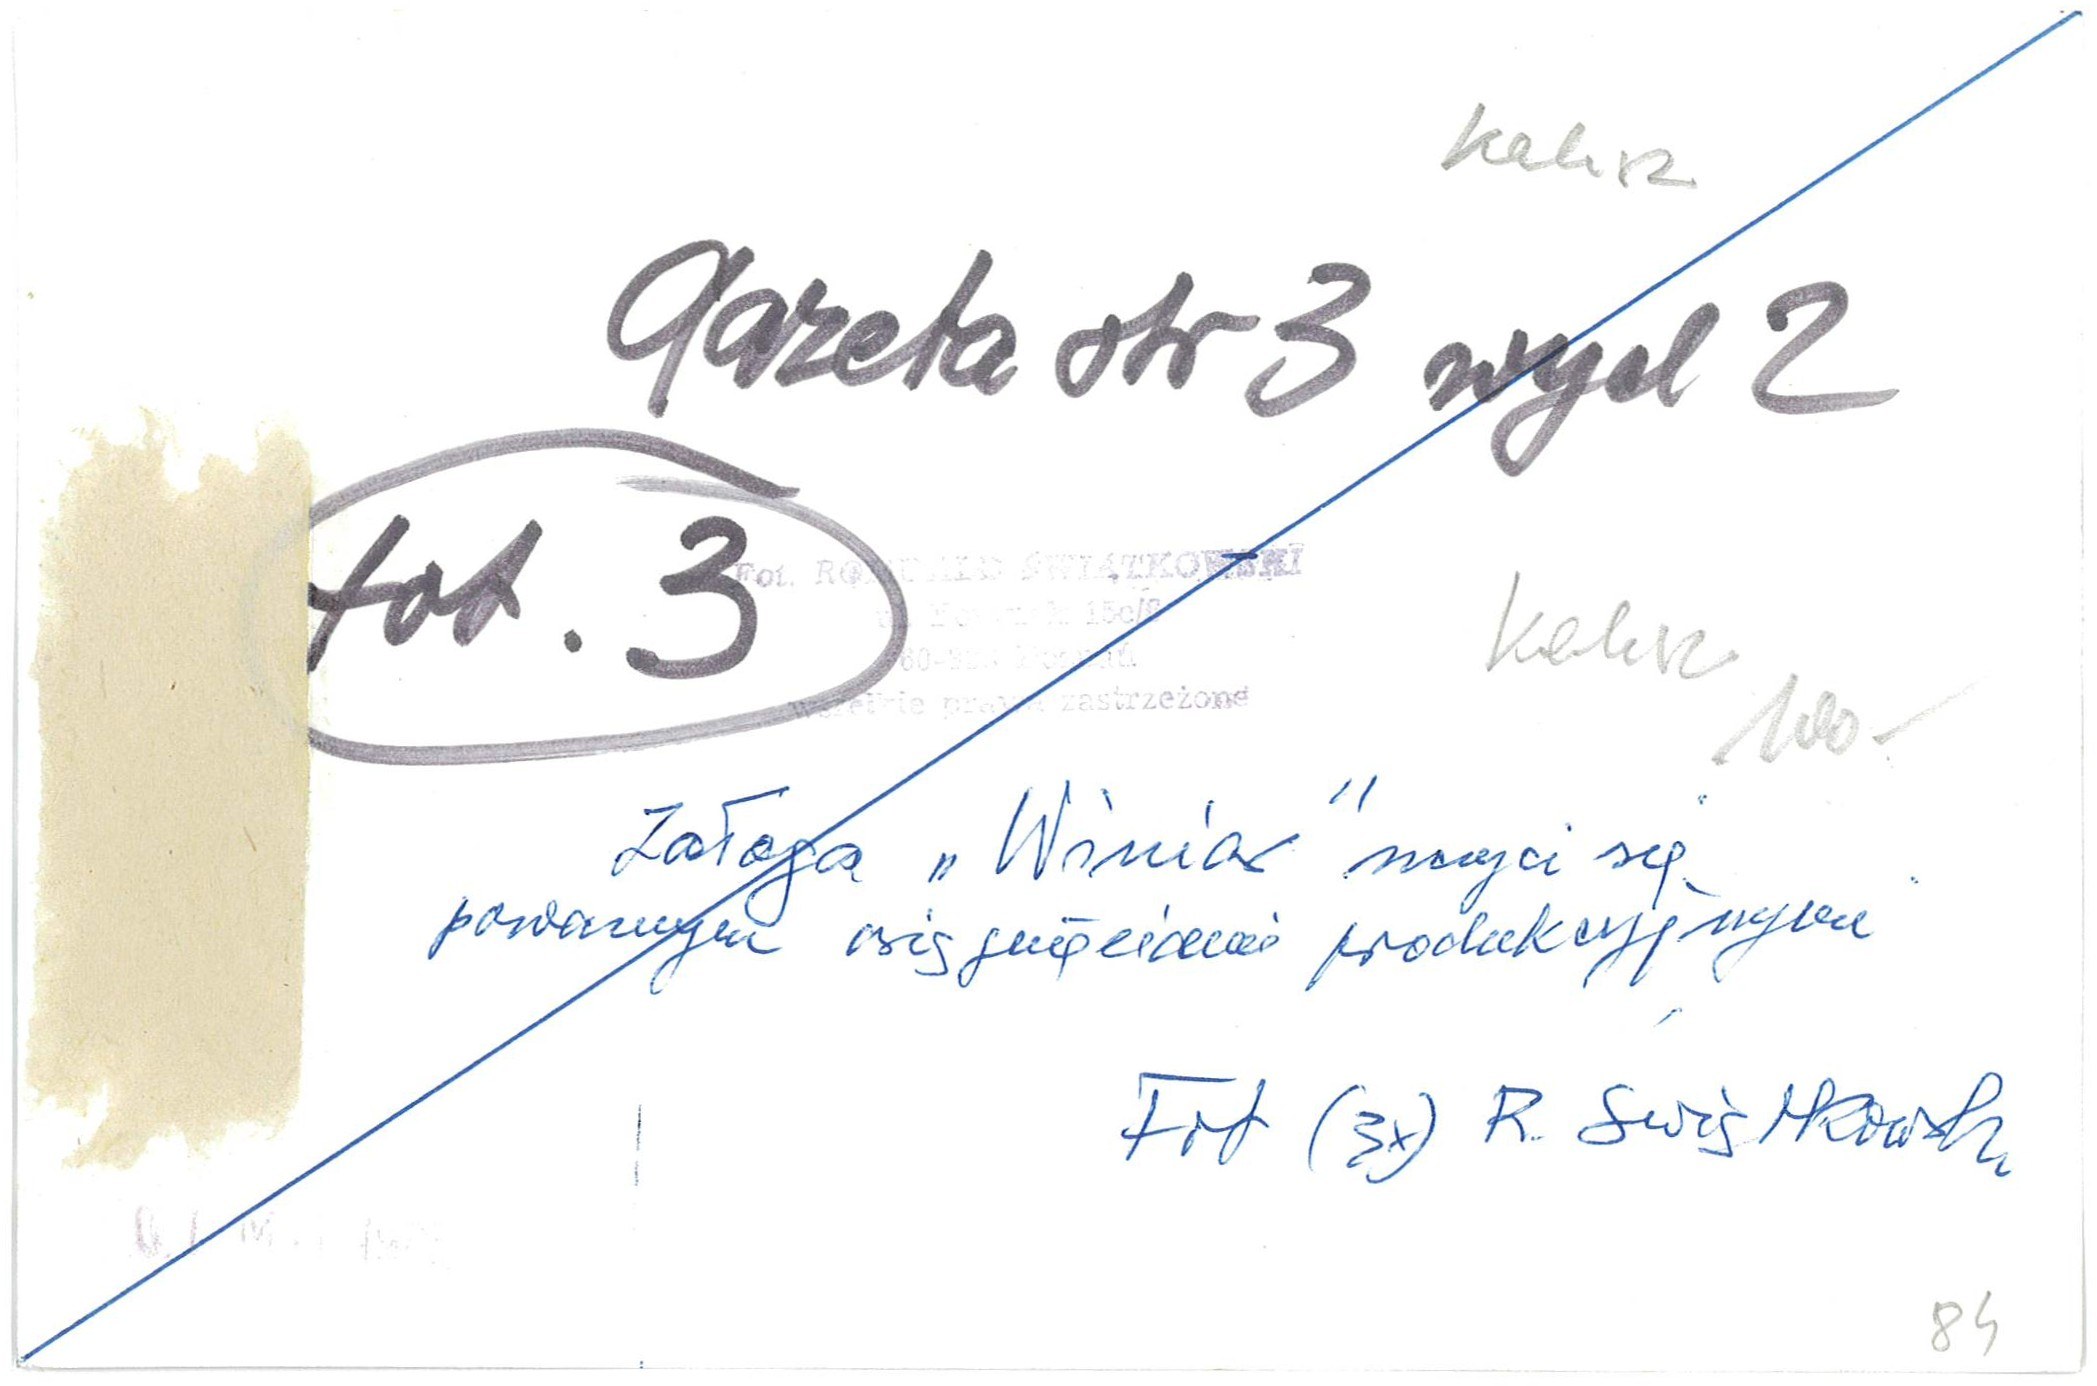 Kalisz
Gazeta str 3 wyd 2
fot. 3
Fot. ROMUALD ŚWIĄTKOWSKI
15c/8
60-
wszelkie prawa zastrzeżone
Kalisz
100-
Załoga „Winiar" szczyci się
poważnymi osiągnięciami produkcyjnymi
Fot (3x) R. Świątkowski
84